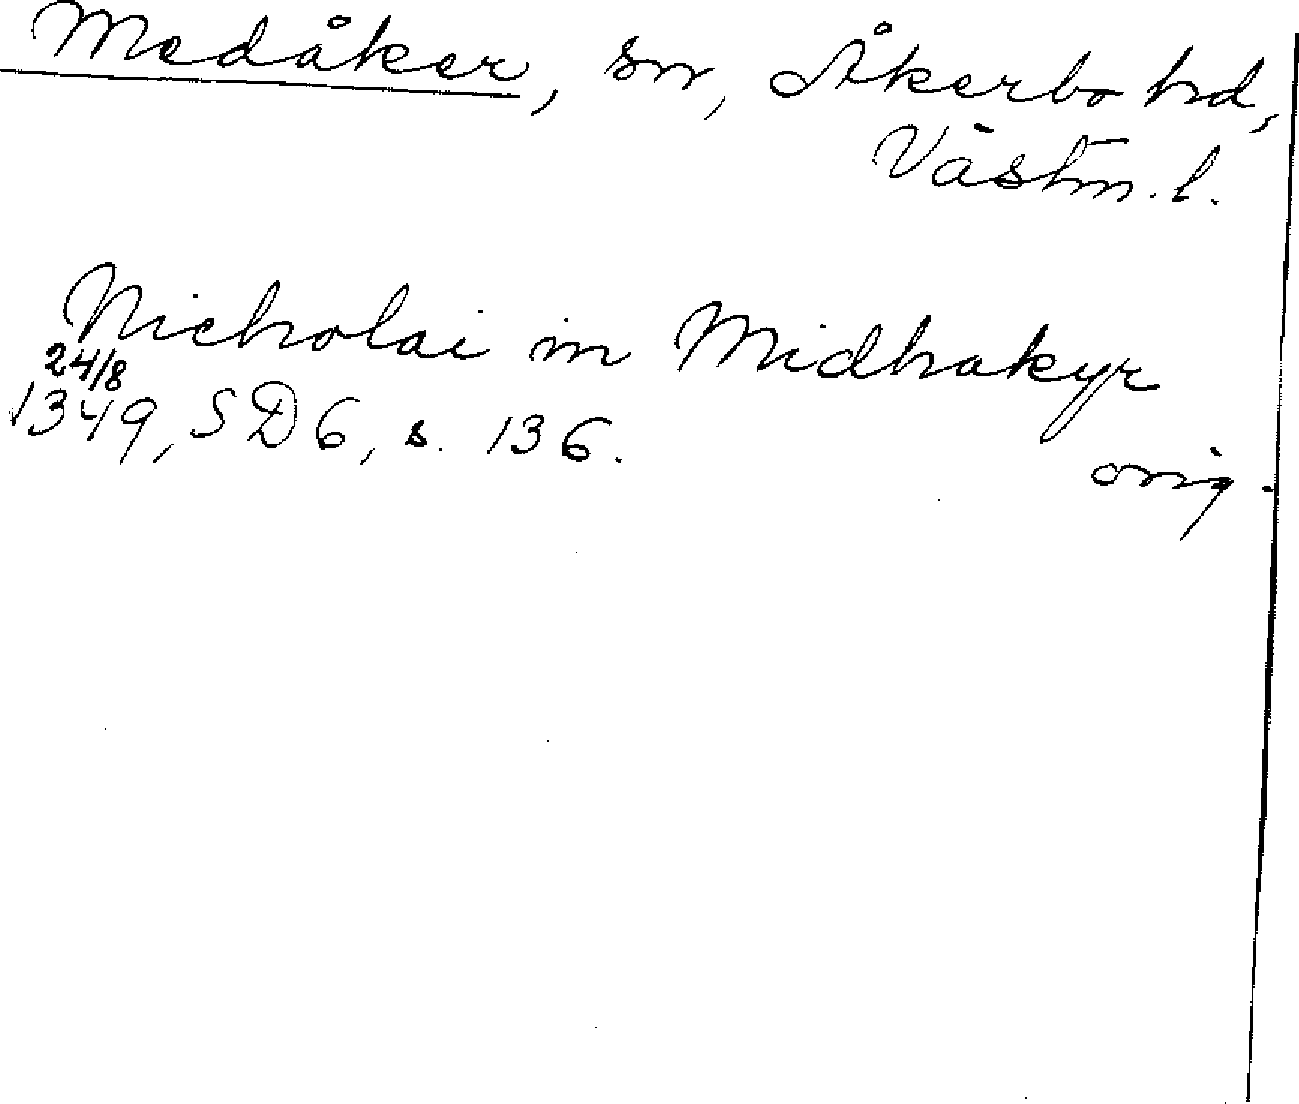 Medåker, sn, Åkerbo hd,
Västm. l.
Nicholai in Midhakyr
24/8
1349, SD 6, s. 136.
orig.